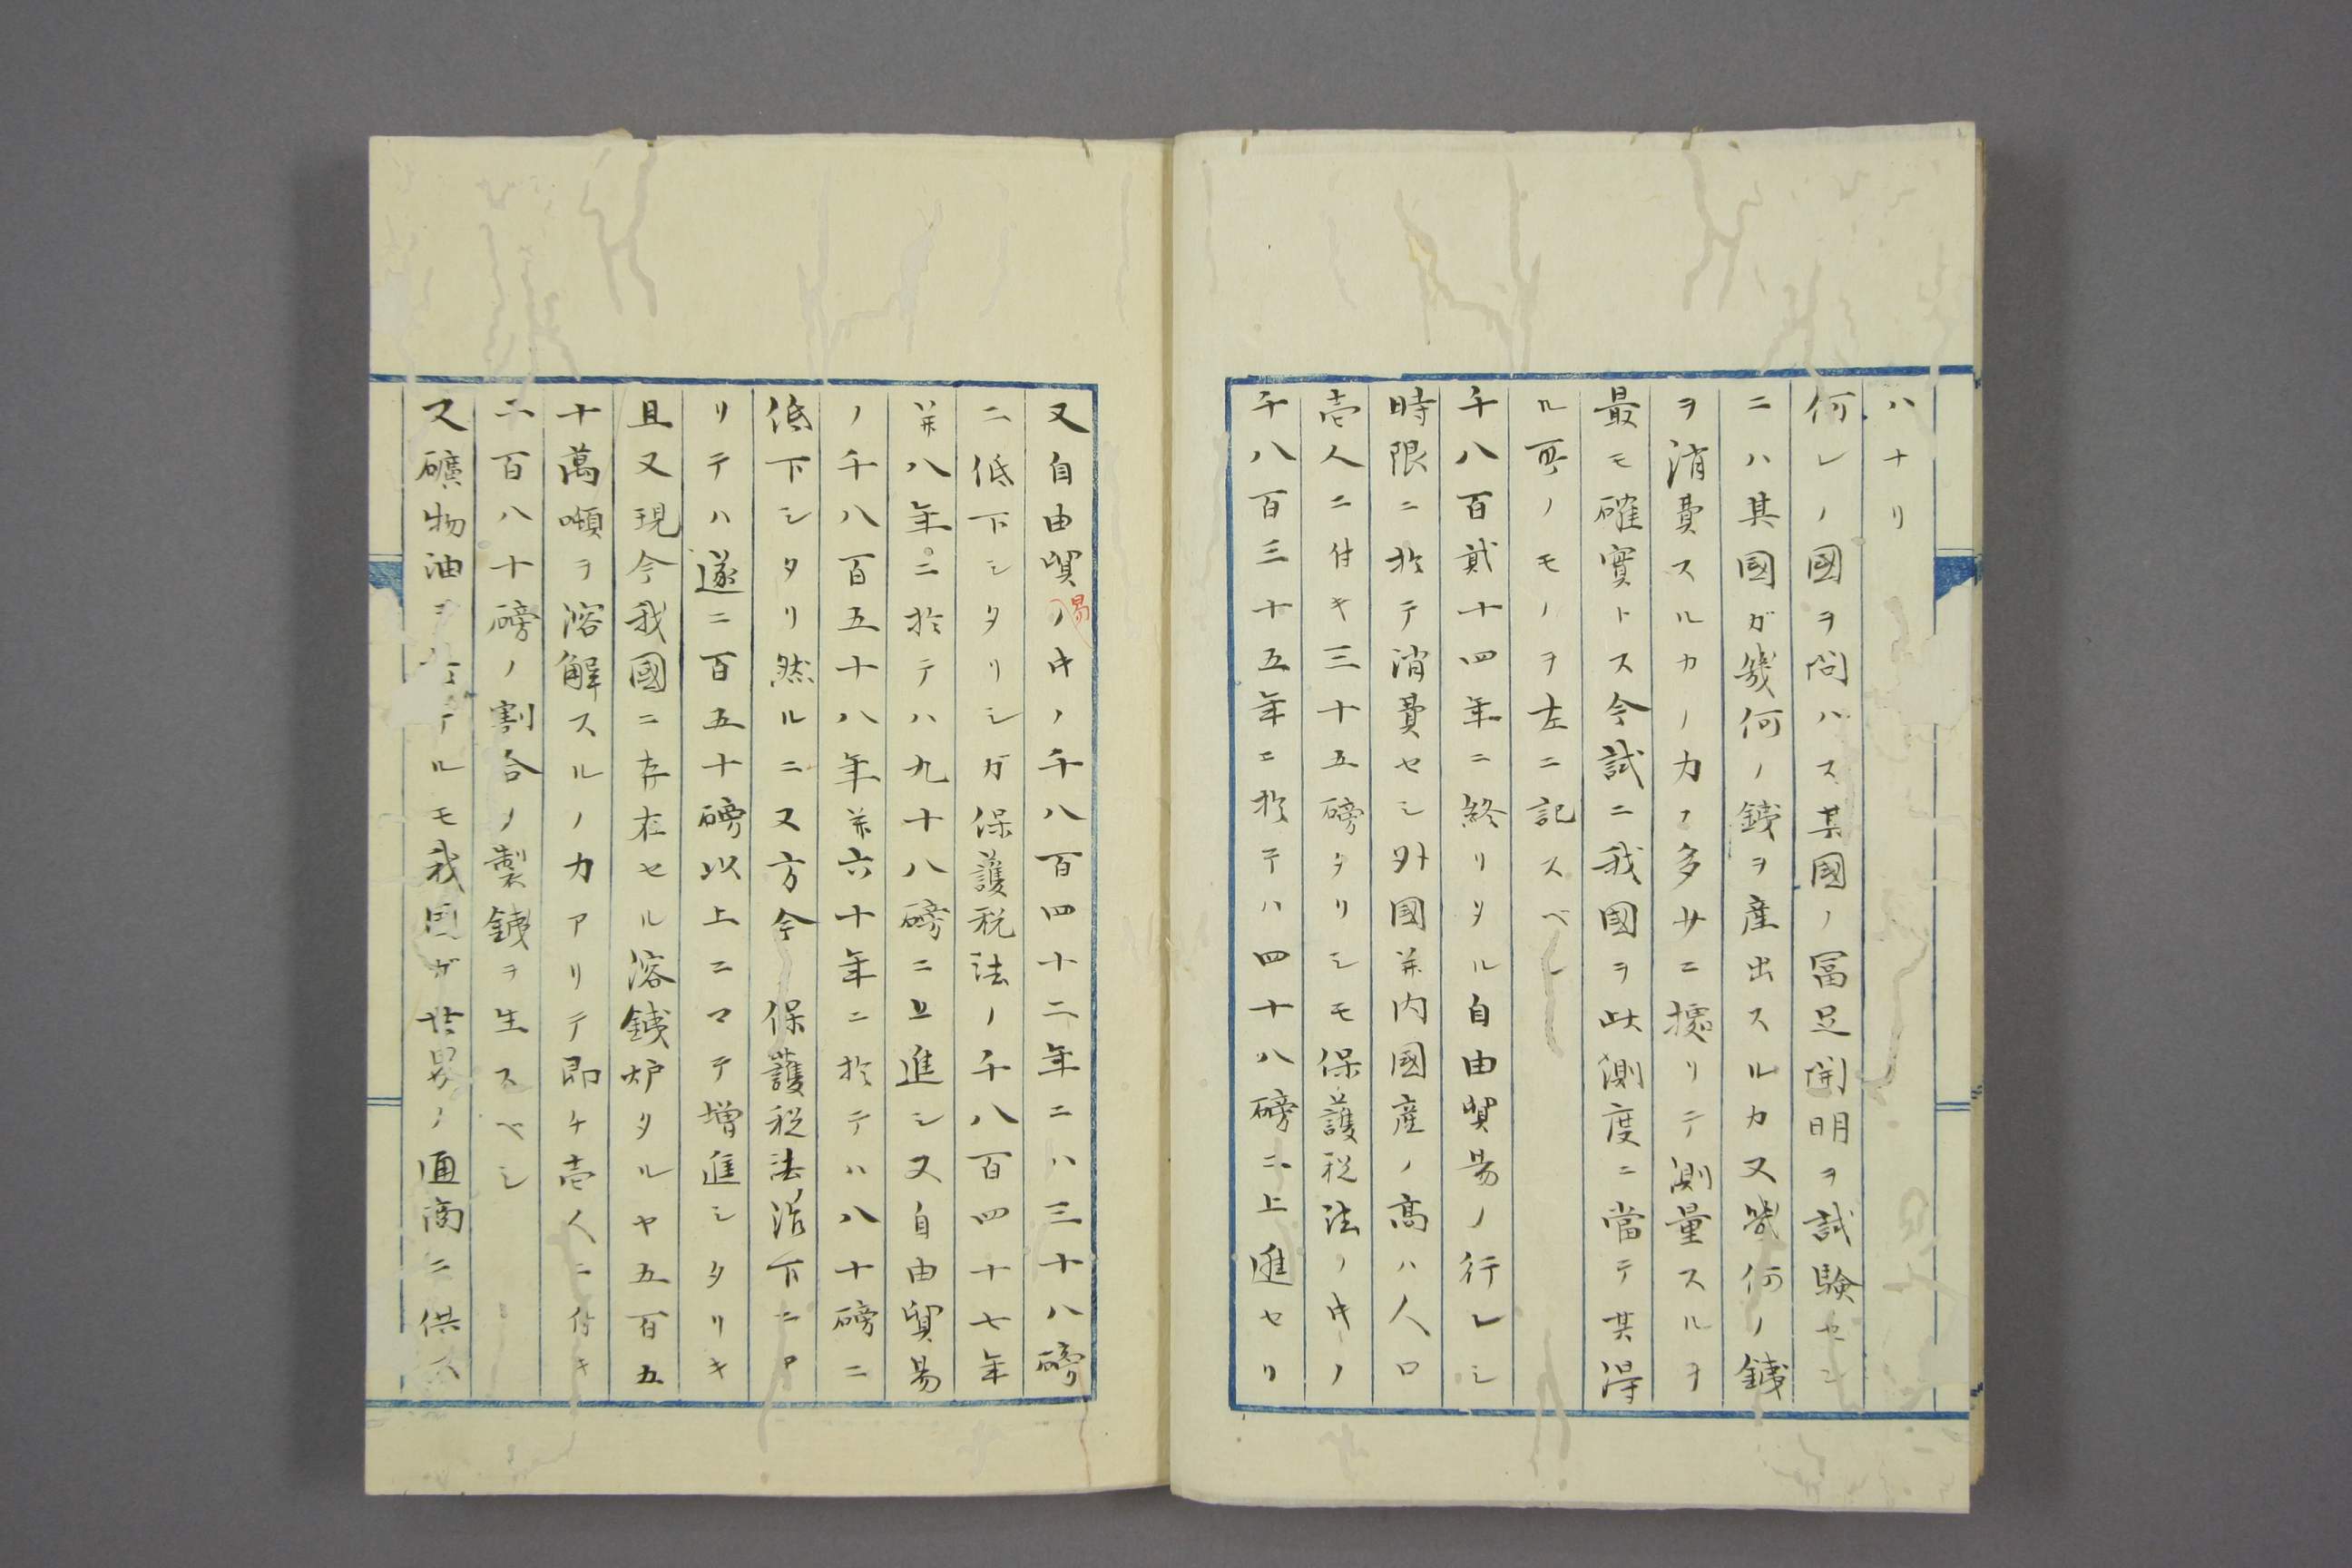 ハナリ
何レノ國ヲ問ハス其國ノ冨足開明ヲ試験セン
ニハ其國ガ幾何ノ銕ヲ産出スルカ又幾何ノ銕
ヲ消費スルカノ力ノ多サニ據リテ測量スルヲ
最モ確實トス今試ニ我國ヲ此測度ニ當テ其得
ル所ノモノヲ左ニ記スベシ
千八百貳十四年ニ終リタル自由貿易ノ行レシ
時限ニ於テ消費セシ外國并内國産ノ高ハ人口
壱人ニ付キ三十五磅タリシモ保護税法ノ時ノ
千八百三十五年ニ於テハ四十八磅ニ上進セリ
又自由貿易ノ時ノ千八百四十二年ニハ三十八磅
ニ低下シタリシガ保護税法ノ千八百四十七年
并八年ニ於テハ九十八磅ニ上進シ又自由貿易
ノ千八百五十八年并六十年ニ於テハ八十磅ニ
低下シタリ然ルニ又方今保護税法治下ニア
リテハ遂ニ百五十磅以上ニマテ増進シタリキ
且又現今我國ニ存在セル溶銕炉タルヤ五百五
十萬噸ヲ溶解スルノ力アリテ即チ壱人ニ付キ
二百八十磅ノ割合ノ製銕ヲ生スベシ
又礦物油ヲテルモ我國ガ世界ノ通商ニ供ス